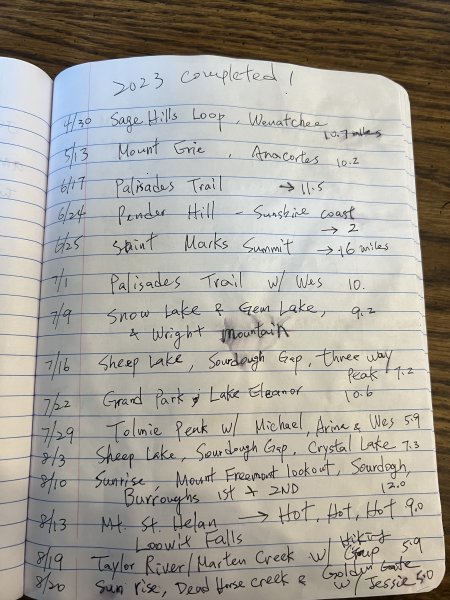 2023 Completed!
4/30 Sage Hills Loop, Wenatchee 10.7 miles
5/13 Mount Erie, Anacortes 10.2
6/17 Palisades Trail → 11.5
6/24 Pender Hill - Sunshine coast → 2
6/25 Saint Marks Summit → 16 miles
7/1 Palisades Trail w/ Wes 10.
7/9 Snow Lake & Gem Lake, 9.2
& Wright Mountain
7/16 Sheep Lake, Sourdough Gap, Three way
Peak 7.2
7/22 Grand Park, Lake Eleanor 10.6
7/29 Tolmie Peak w/ Michael, Arina & Wes 5.9
8/3 Sheep Lake, Sourdough Gap, Crystal Lake 7.3
8/10 Sunrise, Mount Freemont lookout, Sourdogh,
Burroughs 1st & 2ND 12.0
8/13 Mt. St. Helan → Hot, Hot, Hot 9.0
Loowit Falls
8/19 Taylor River/Marten Creek w/ Hiking Group 5.9
8/20 Sun rise, Dead Horse creek & Golden Gate
w/ Jessie 5.0